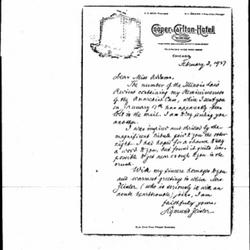 Cooper-Carlton Hotel
Chicago,
February 2, 1927
Dear Miss Addams,
The number of the Illinois Law
Review containing my Reminiscences
of the Anarchist Case, which I sent you
on January 17th has apparently been
lost in the mail. I am today sending you
another.
I was inspired and thrilled by the
magnificent tribute paid to you the other
night. I had hoped for a chance to say
a word to you, but found it quite im-
possible to get near enough to you in the
crush.
With my sincere homage to you
and warmest greeting in which Mrs.
Zeisler (who is seriously ill with an
acute heart trouble) joins, I am
faithfully yours,
Sigmund Zeisler.